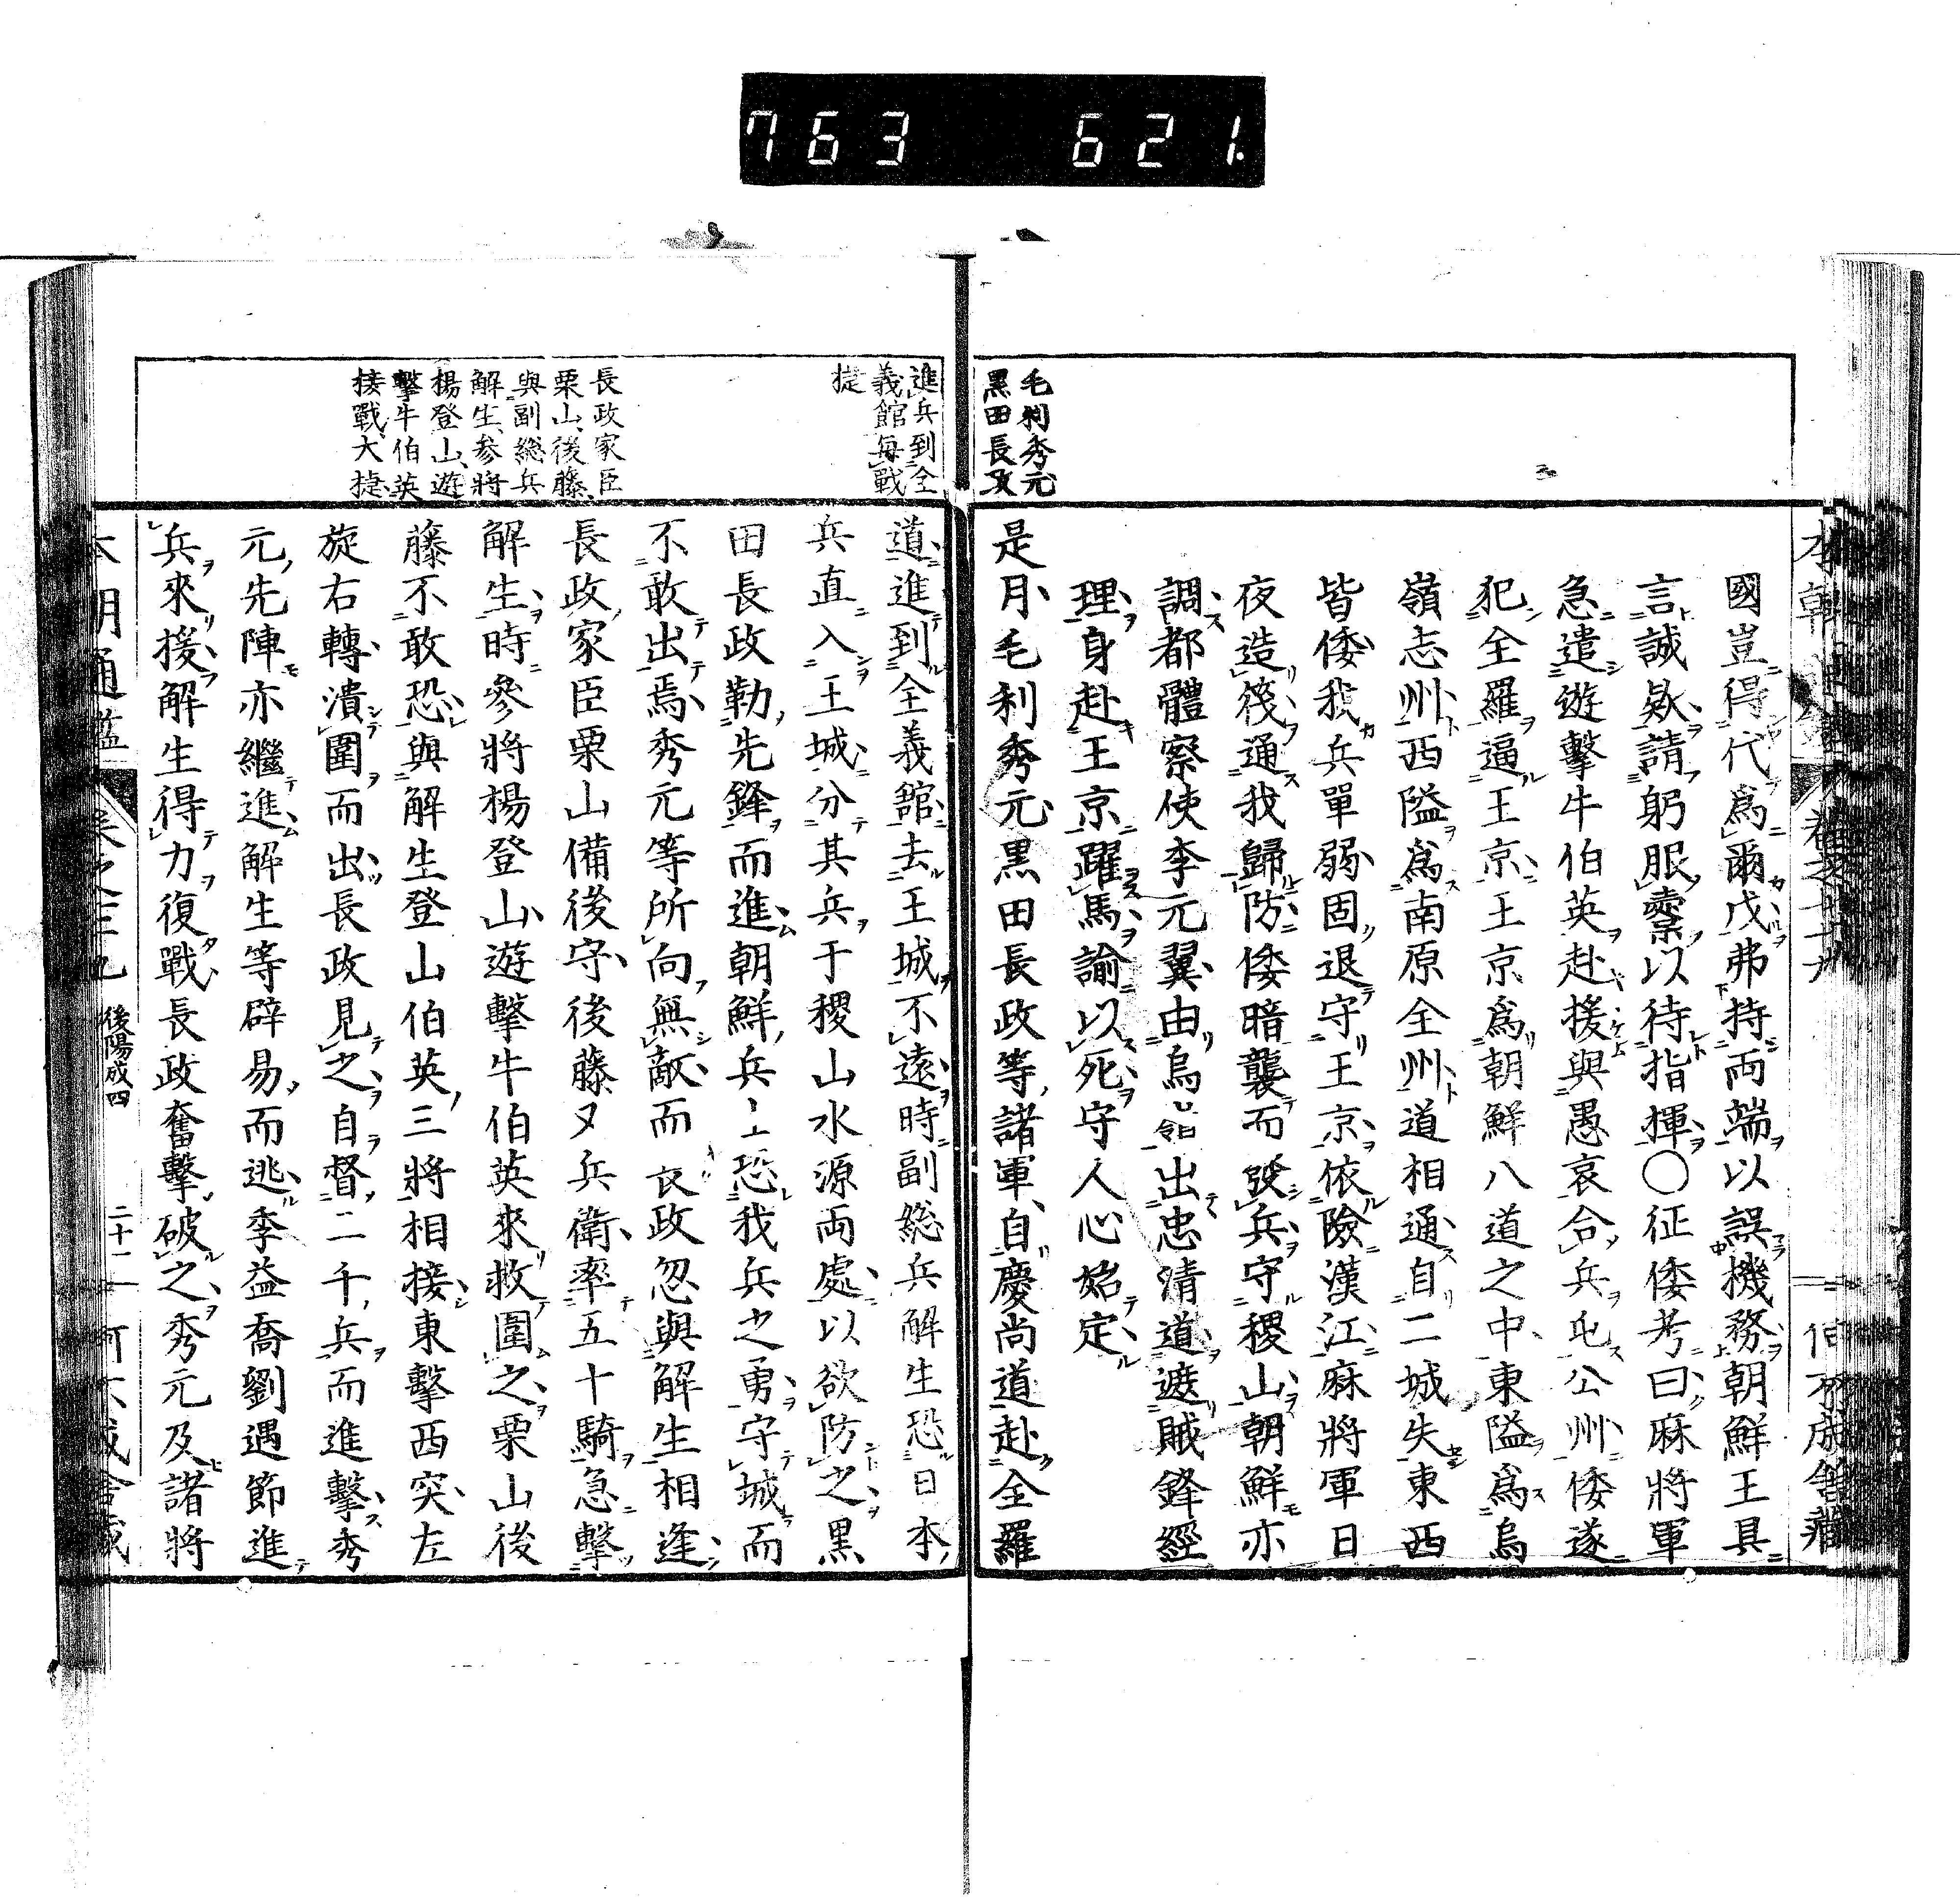 763 621.
毛利秀元
黒田長政
國豈得代爲爾戊弗持両端以誤機務朝鮮王具
言誠欵請躬服櫜以待指揮〇征倭考曰麻將軍
急遣遊擊牛伯英赴援與愚衷合兵屯公州倭遂
犯全羅逼王京王京爲朝鮮八道之中東隘爲烏
嶺忠州西隘爲南原全州道相通自二城失東西
皆倭我兵單弱固退守王京依險漢江麻將軍日
夜造筏通我歸防倭暗襲而發兵守稷山朝鮮亦
調都體察使李元翼由烏嶺出忠清道遮賊鋒經
理身赴王京躍馬諭以死守人心始定
是月毛利秀元黒田長政等諸軍自慶尚道赴全羅
進兵到全
義館每戰
捷
長政家臣
栗山後藤
與副総兵
解生参將
楊登山遊
擊牛伯英
接戰大捷
道進到全義舘去王城不遠時副総兵解生恐日本
兵直入王城分其兵于稷山水源両處以欲防之黒
田長政勒先鋒而進朝鮮兵士恐我兵之勇守城而
不敢出焉秀元等所向無敵而長政忽與解生相逢
長政家臣栗山備後守後藤又兵衛率五十騎急擊
解生時參將楊登山遊擊牛伯英來救圍之栗山後
藤不敢恐與解生登山伯英三將相接東擊西突左
旋右轉潰圍而出長政見之自督二千兵而進擊秀
元先陣亦繼進解生等辟易而逃季益喬劉遇節進
兵來援解生得力復戰長政奮擊破之秀元及諸將
後陽成四
二十二